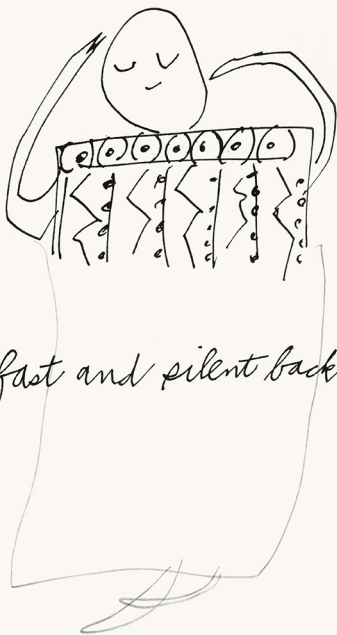 fast and silent back